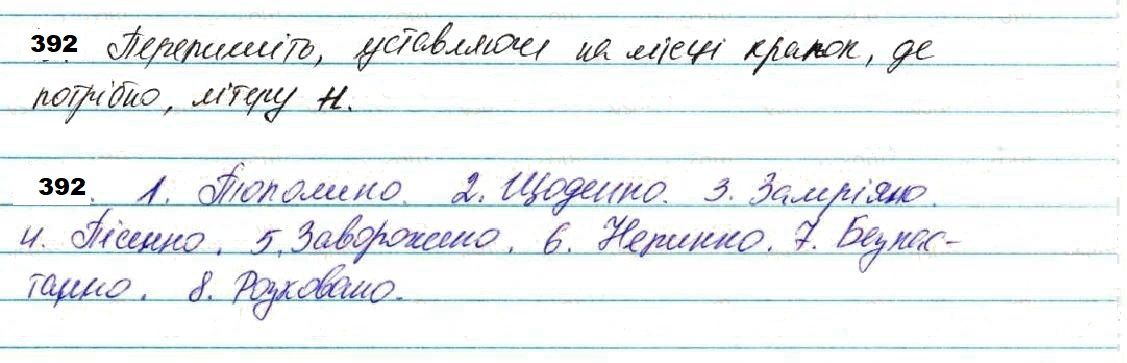 392 Перепишіть, уставляючи на місці крапок, де
потрібно, літеру н.
392. 1. Тополино. 2. Щоденно. 3. Замріяно.
4. Пісенно. 5. Заворожено. 6. Неринно. 7. Безпас-
танно. 8. Розковано.